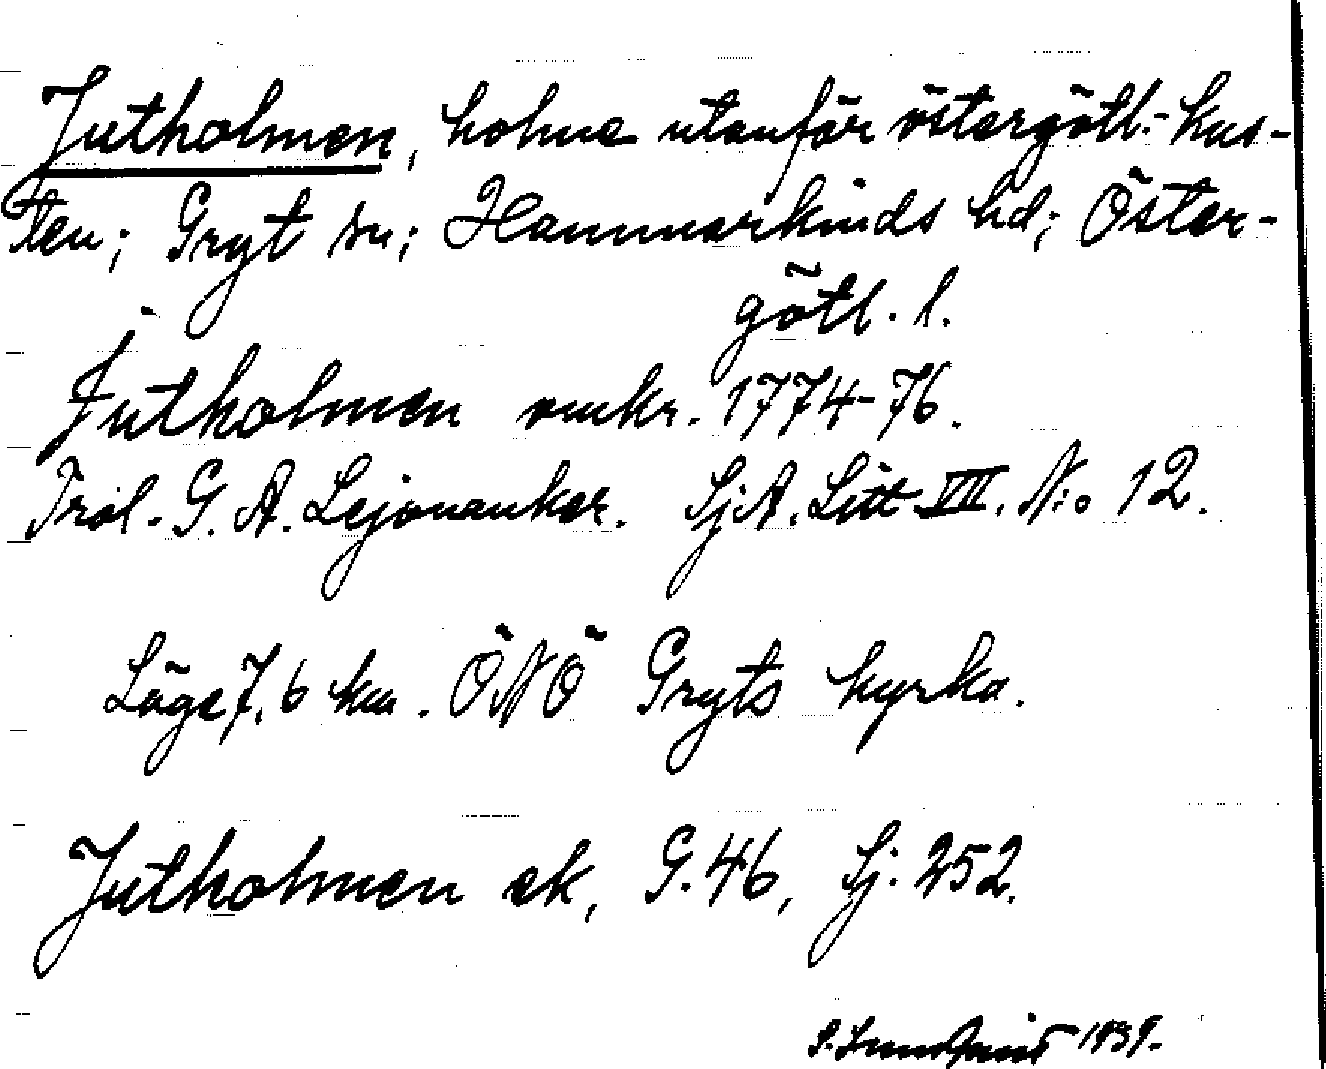 Jutholmen, holme utanför östergötl.- kus-
ten; Gryt sn; Hammarkinds hd; Öster-
götl. l.
Jutholmen omkr. 1774-76.
Trol. G. A. Lejonanker. SjA. Litt. VIII. N:o 12.
Läge 7,6 km. ÖNÖ Gryts kyrka.
Jutholmen ek, G. 46, Sj: 252.
1939.